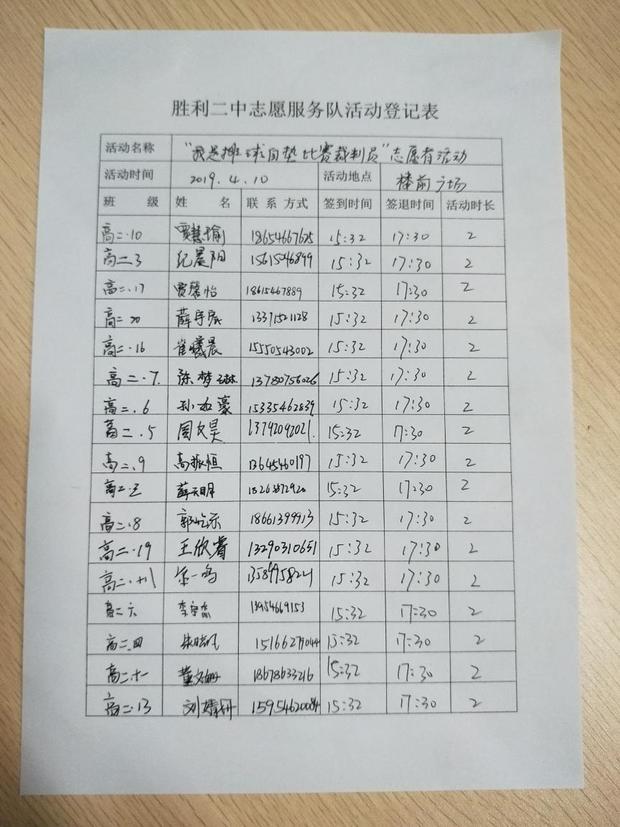 胜利二中志愿服务队活动登记表
活动名称 “我是排球自垫比赛裁判员”志愿者活动
活动时间 2019.4.10 活动地点 楼前广场
班 级 姓 名 联系方式 签到时间 签退时间 活动时长
高二·10 贾慧瑜 18654667625 15:32 17:30 2
高二.3 纪晨阳 15615046899 15:32 17:30 2
高二.17 贾馨怡 18615467889 15:32 17:30 2
高二 20 薛宇辰 13371521128 15:32 17:30 2
高二·16 崔曦晨 15550543002 15:32 17:30 2
高二·7. 陈梦琳 13780756026 15:32 17:30 2
高二.6 孙如豪 15335462839 15:32 17:30 2
高二.5 周文昊 13792092021. 15:32 17:30 2
高二.9 高振恒 13645460197 15:32 17:30 2
高二·五 薛天明 18263872920 15:32 17:30 2
高二·8 郭 18661399913 15:32 17:30 2
高二·19 王欣睿 13290310651 15:32 17:30 2
高二·十八 一鸣 15:32 17:30 2
高二六 李 15:32 17:30 2
高二.四 朱晓凡 15166279044 15:32 17:30 2
高二·十一 董文 18678633216 15:32 17:30 2
高二·13 刘婧妍 15954620084 15:32 17:30 2